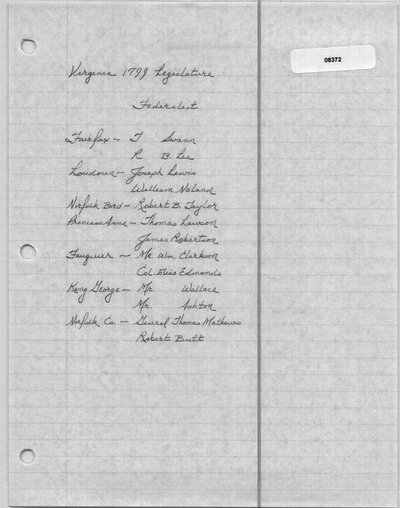 08372
Virginia 1799 Legislature
Federalist
Fairfax - T Swann
R. B. Lee
Loudoun - Joseph Lewis
William Noland
Norfolk Boro' - Robert B. Taylor
Princess Anne - Thomas Lawson
James Robertson
Fauquier - Mr. Wm. Clarkson
Col. Elias Edmonds
King George - Mr. Wallace
Mr. Ashton
Norfolk Co. - General Thomas Mathews
Robert Butt